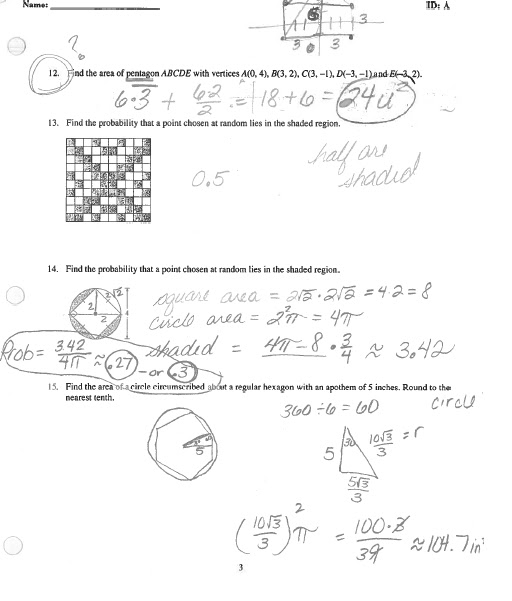 Name:
ID: A
6
3
3 3
?
12. Find the area of pentagon ABCDE with vertices A(0, 4), B(3, 2), C(3, −1), D(−3, −1) and E(−3, 2).
6·3 + 6·2/2 = 18+6 = 24u²
13. Find the probability that a point chosen at random lies in the shaded region.
half are
shaded
0.5
14. Find the probability that a point chosen at random lies in the shaded region.
2√2
2
2
4
square area = 2√2 · 2√2 = 4·2 = 8
circle area = 2²π = 4π
shaded = 4π − 8 · 3/4 ≈ 3.42
Prob = 3.42/4π ≈ .27 – or .3
15. Find the area of a circle circumscribed about a regular hexagon with an apothem of 5 inches. Round to the
nearest tenth.
360 ÷ 6 = 60
circle
5
5 30 10√3/3 = r
5√3/3
(10√3/3)² π = 100·3/9 ≈ 104.7 in²
3